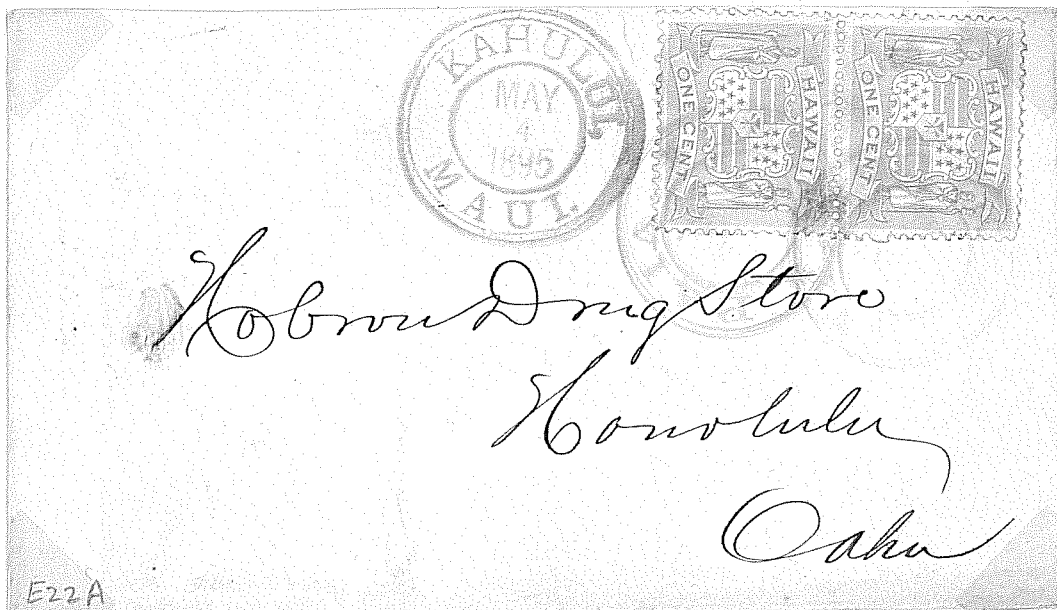 KAHULUI,
MAY
4
1895
MAUI.
HAWAII
ONE CENT
HAWAII
ONE CENT
Hobron Drug Store
Honolulu
Oahu
E22A